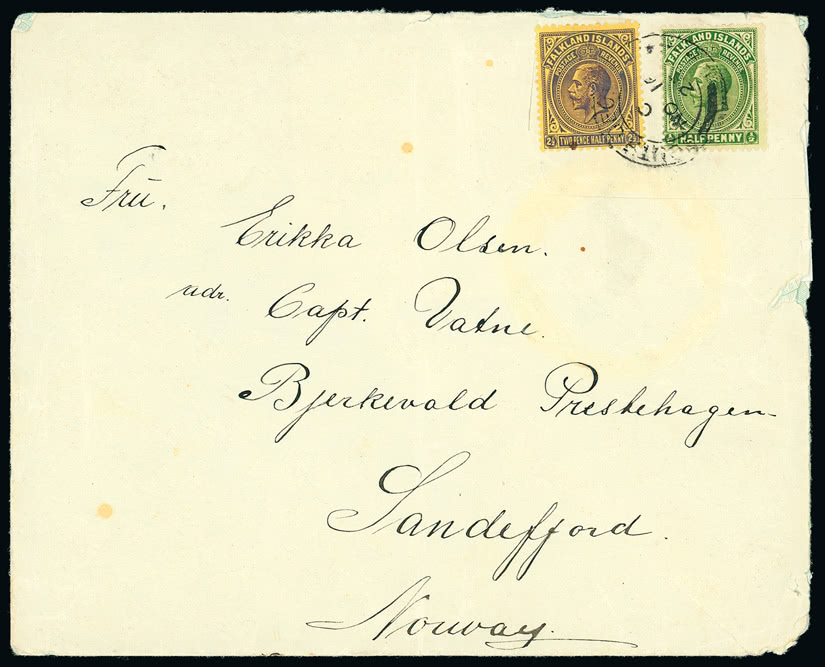 FALKLAND ISLANDS
POSTAGE REVENUE
2½ TWO PENCE HALF PENNY 2½
FALKLAND ISLANDS
POSTAGE REVENUE
½ HALFPENNY ½
Fru.
Erikka Olsen.
adr. Capt. Vatne.
Bjerkevold Prestehagen
Sandefjord.
Norway.